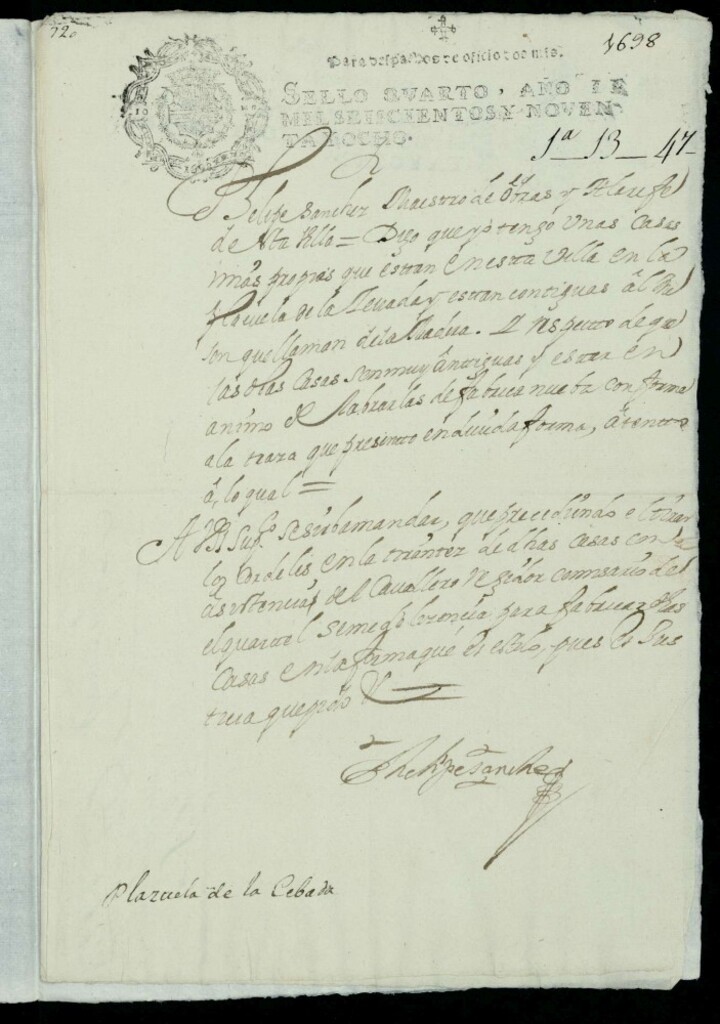 720
1698
Para despachos de oficio dos mrs.
SELLO QVARTO, AÑO DE
MIL SEISCIENTOS Y NOVEN
TA Y OCHO.
1ª 13 47
Phelipe Sanchez Maestro de Obras y Alarife
de esta Villa = Digo que yo tengo Unas Casas
mias propias que estan en esta Villa en la
Plaçuela de la Zevada y estan contiguas al
son que llaman de la . Y respecto de que
las dhas Casas son muy antiguas y estar en
animo de labrarlas de fabrica nueba conforme
a la traza que presento en devida forma, atento
a lo qual =
A V.S. Suppco se sirba mandar, que precediendo el tirar
los Cordeles en la de dhas Casas con
asistencia del Cavallero Regidor Comisario de
el quartel se me de licencia para fabricar dhas
Casas en la forma que es estilo, pues es Jus
ticia que pido Vª
Phelipe Sanchez
Plazuela de la Cebada